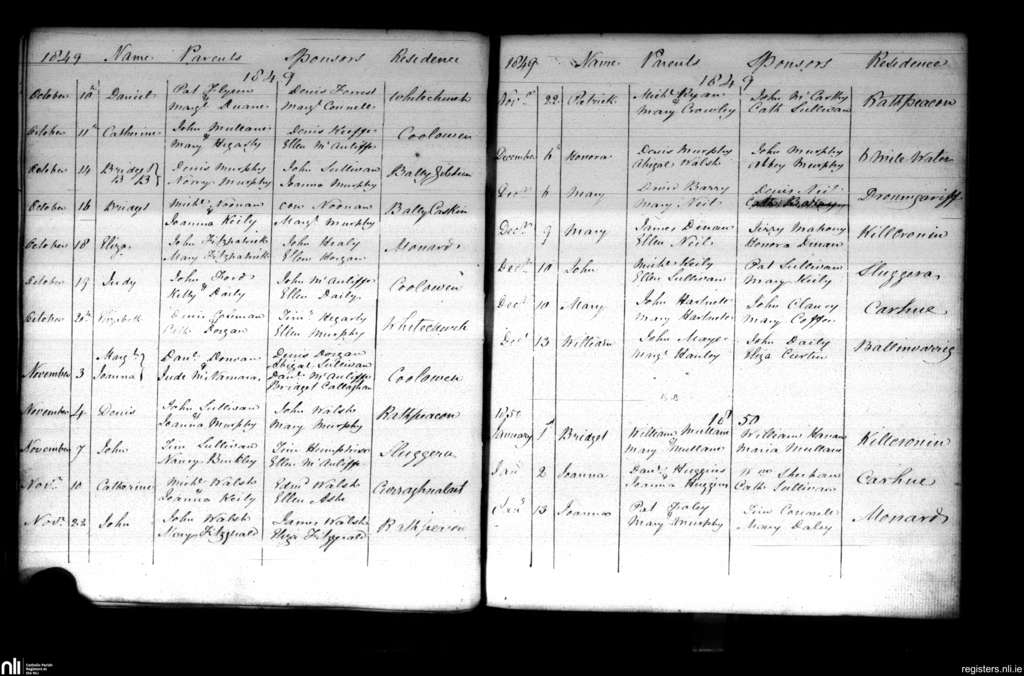 1849 Name Parents Sponsors Residence
1849
October 10th Daniel Pat Flynn Denis Forrest Whitechurch
Margt Duane Margt Connell
October 11th Catherine John Mullane Denis Keeffe Coolowen
& Mary Hegarty Ellen McAuliffe
October 14 Bridget Denis Murphy John Sullivan Bally
Nancy Murphy Joanna Murphy
October 16 Bridget Michl Noonan Con Noonan Bally Caskin
& Joanna Keily Margt Murphy
October 18 Eliza John Fitzpatrick John Healy Monard
Mary Fitzpatrick Ellen Horgan
October 19 Judy John Ford John McAuliffe Coolowen
& Kitty Daily Ellen Daily
October 20th Elizabeth Denis Timy Hegarty Whitechurch
Cath Dorgan Ellen Murphy
Margt Danl Donovan Denis Dorgan
Abigal Sullivan
November 3 Joanna Jude McNamara Danl McAuliffe Coolowen
Bridget Callaghan
November 4 Denis John Sullivan John Walsh Rathpeacon
& Joanna Murphy Mary Murphy
November 7 John Tim Sullivan Tim Sluggera
Nancy Buckley Ellen McAuliffe
Novr 10 Catharine Michl Walsh Edmd Walsh
& Joanna Keily Ellen Ashe
Novr 22 John John Walsh James Walsh
Nancy Fitzgerald Eliza Fitzgerald
1849 Name Parents Sponsors Residence
1849
Novr 22 Patrick Michl Ryan John McCarthy Rathpeacon
& Mary Crowley Cath Sullivan
December 6th Honora Denis Murphy John Murphy 6 Mile Water
Abigal Walsh Abbey Murphy
Decr 6 Mary David Barry Denis Neil
Mary Neil
Decr 9 Mary James Dinan Jerry Mahony Killcronin
Ellen Neil Honora Dinan
Decr 10 John Michl Keily Pat Sullivan Sluggera
Ellen Sullivan Mary Keily
Decr 10 Mary John Hartnett John Clancy Carhue
Mary Hartnett Mary
Decr 13 William John Mayer John Daily Ballinvarrig
Margt Hanley Eliza Curtin
1850
18 50
January 1st Bridget William Mullane William Killcronin
& Mary Mullane Maria Mullane
Jany 2 Joanna Danl Huggins Wm Sheehan Carhue
& Joanna Huggins Cath Sullivan
Jany 13 Joanna Pat Foley Tim Connell Monard
Mary Murphy Mary Daley
nli
Catholic Parish
Registers at
the NLI
registers.nli.ie